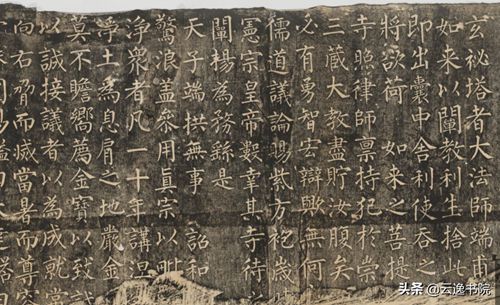 玄祕塔者大法師端甫
如來以闡教利生捨此
即出囊中舍利使吞之
將欲荷 如來之菩提
寺照律師稟持犯於崇
三藏大教盡貯汝腹矣
必有勇智宏辯歟無何
儒道議論賜紫方袍歲
憲宗皇帝數幸其寺待
闡楊為務繇是
天子端拱無事 詔和
驚浪蓋參用真宗以毗
淨衆者凡一十年講涅
淨土為息肩之地嚴金
莫不瞻嚮薦金寶以致誠
以誠接議者以為成就
向右脅而滅當暑而尊
头条 @云逸书院